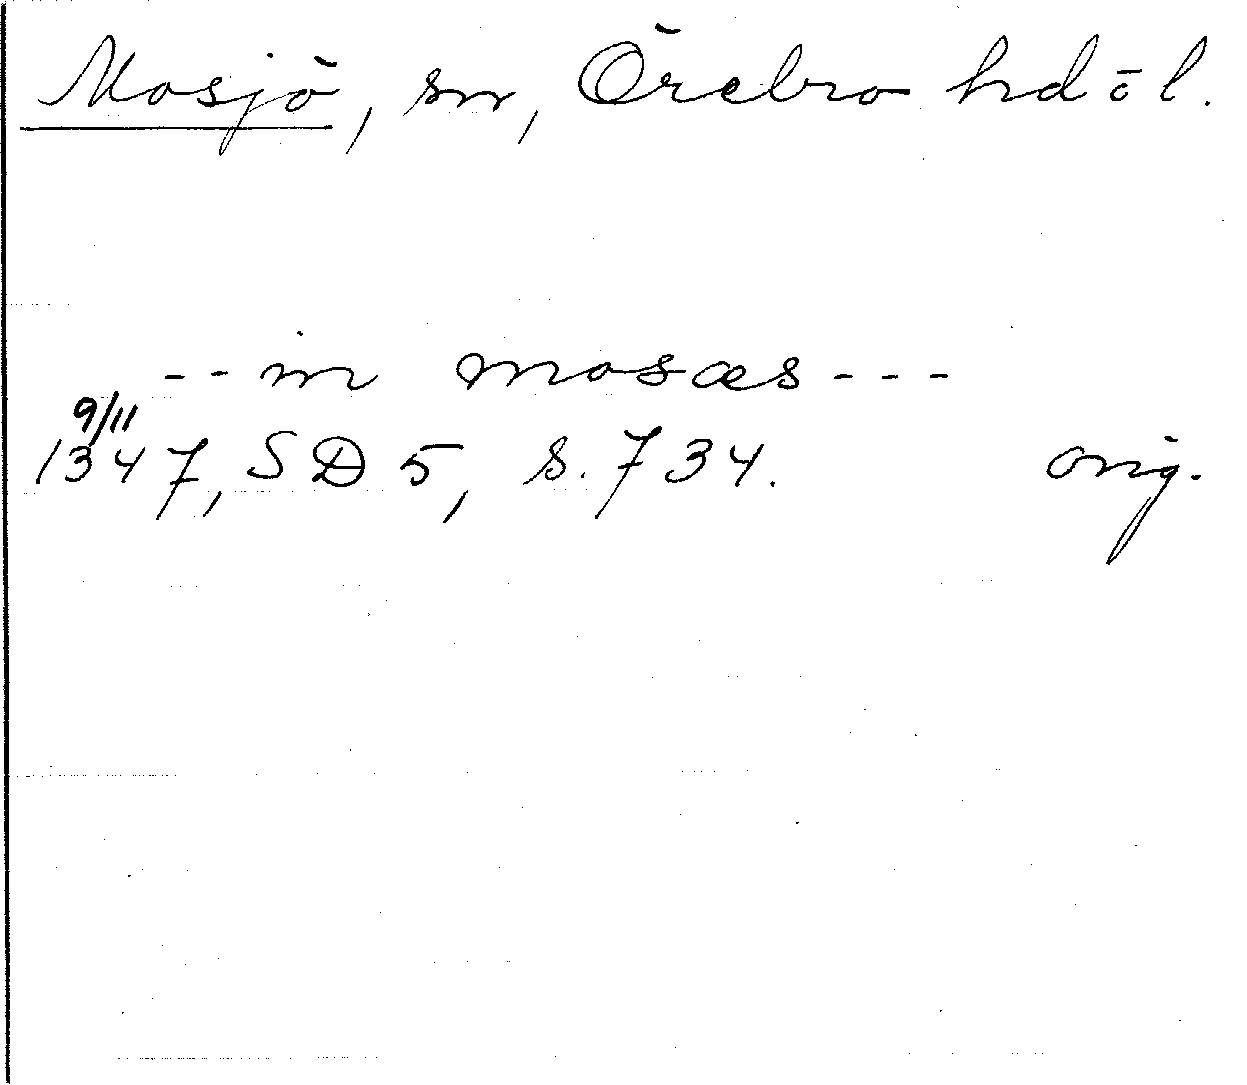 Mosjö, sn, Örebro hd ö l.
-- in mosæs ---
9/11
1347, SD 5, s. 734. orig.